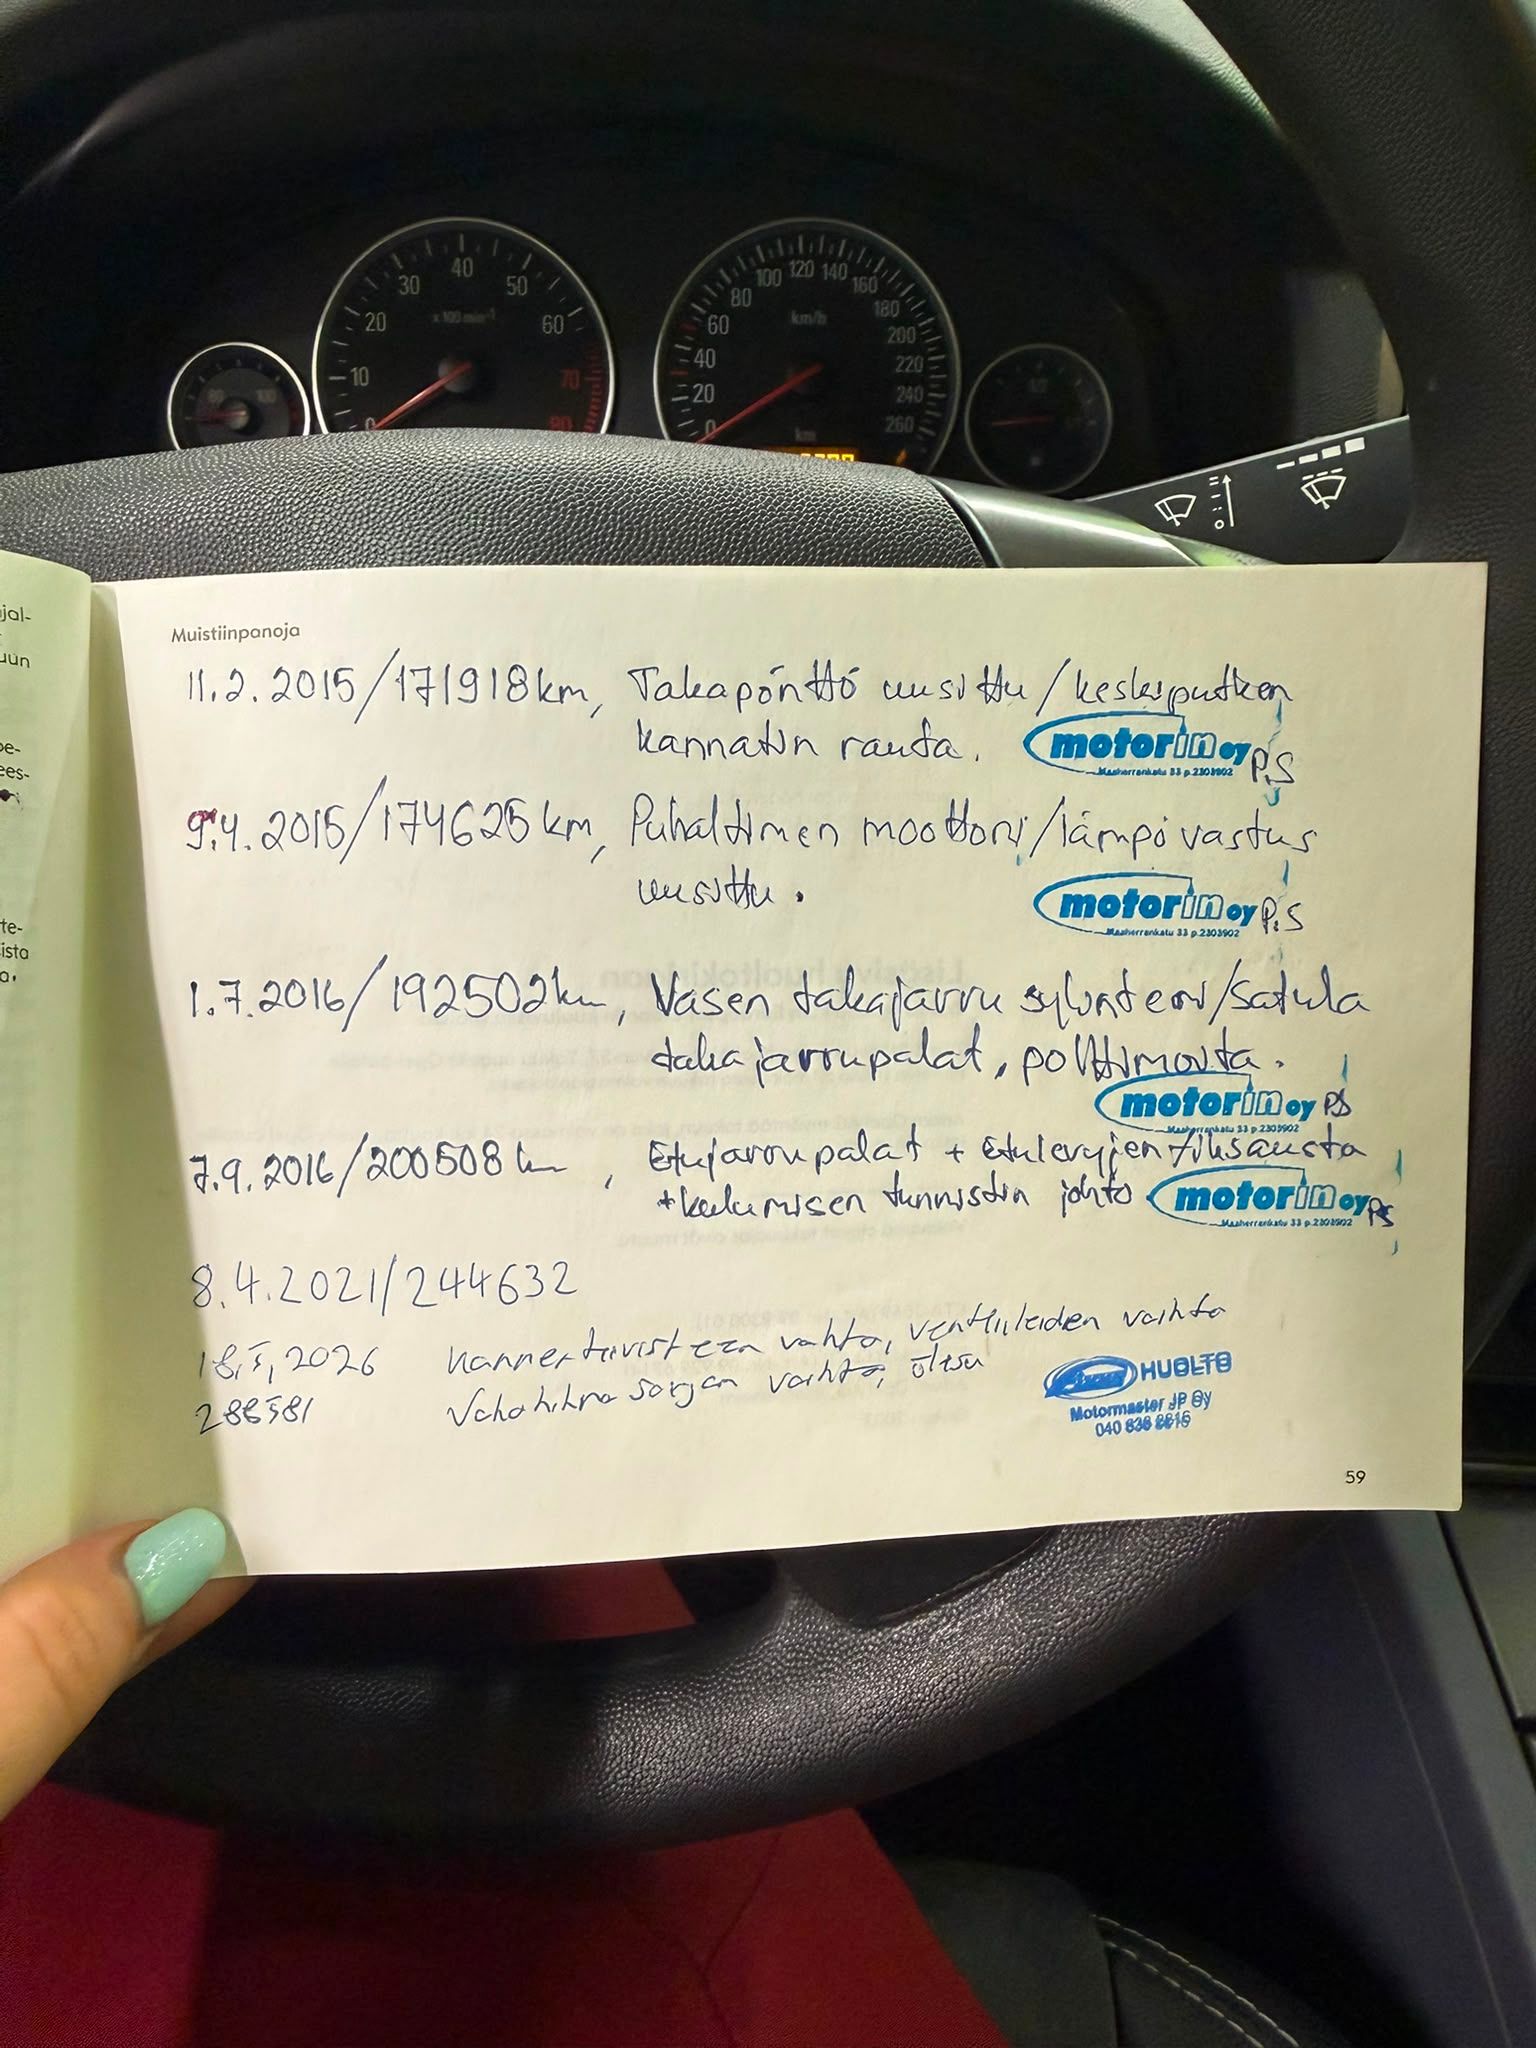 10 20 30 40 50 60 70 80
x 100 min-1
0 20 40 60 80 100 120 140 160 180 200 220 240 260
km/h
km
100
1/2
Muistiinpanoja
11.2.2015/171918km, Takapönttö uusittu/keskiputken
kannatin rauta. motorin oy P.S
Maaherrankatu 33 p.2303902
9.4.2015/174625km, Puhaltimen moottori/lämpövastus
uusittu. motorin oy P.S
Maaherrankatu 33 p.2303902
1.7.2016/192502km, Vasen takajarru sylinteri/satula
takajarrupalat, polttimoita.
motorin oy PS
Maaherrankatu 33 p.2303902
7.9.2016/200508km, Etujarrupalat + Etulevyjen fiksausta
+kulumisen tunnistin johto motorin oy PS
Maaherrankatu 33 p.2303902
8.4.2021/244632
2026 Kannentiivisteen vaihto, venttiileiden vaihto
Vakohihna sarjan vaihto, öljyt
HUOLTO
Motormaster JP Oy
040 838 8816
59